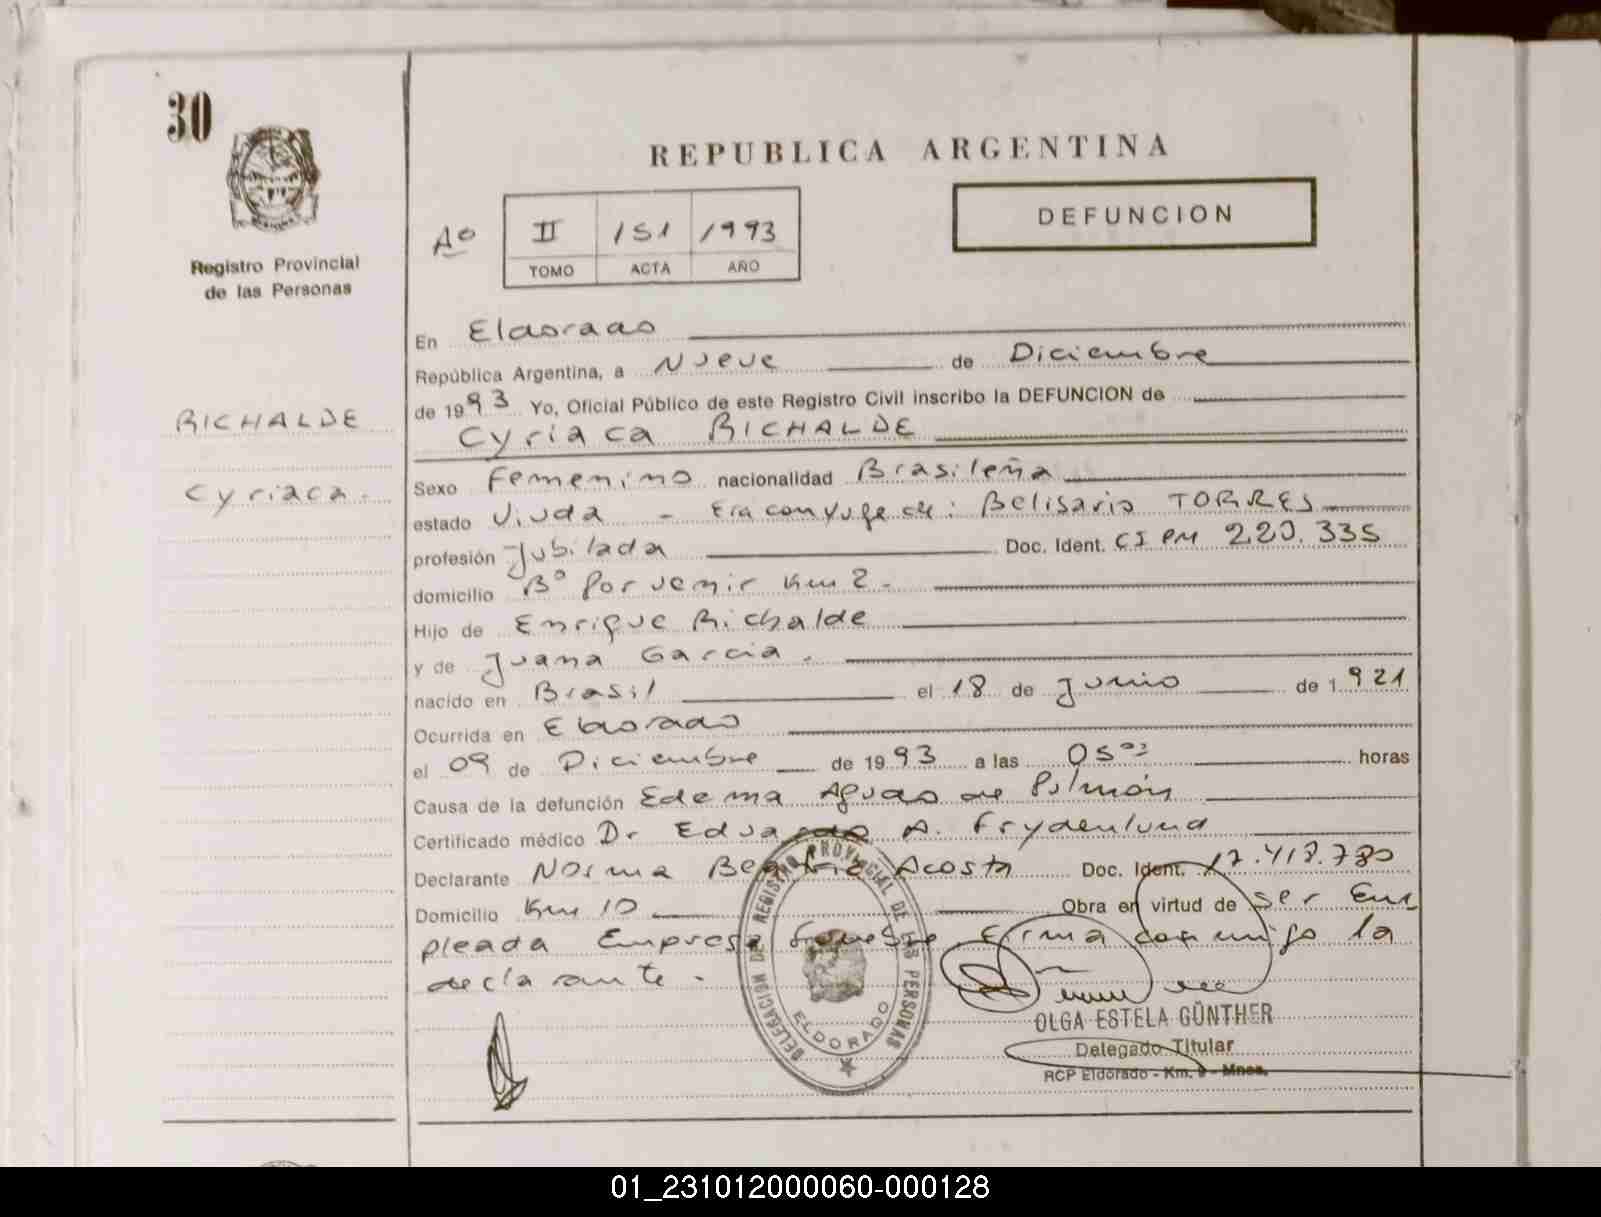 30
Registro Provincial
de las Personas
RICHALDE
Cyriaca.
REPUBLICA ARGENTINA
Aº II 151 1993
TOMO ACTA AÑO
DEFUNCION
En Eldorado
República Argentina, a Nueve de Diciembre
de 1993 Yo, Oficial Público de este Registro Civil inscribo la DEFUNCION de
Cyriaca RICHALDE
Sexo Femenino nacionalidad Brasileña
estado Viuda - Era conyuge de: Belisario TORRES
profesión Jubilada Doc. Ident. CI PM 220.335
domicilio Bº Porvenir Km 2.
Hijo de Enrique Richalde
y de Juana Garcia.
nacido en Brasil el 18 de Junio de 1.921
Ocurrida en Eldorado
el 09 de Diciembre de 1993 a las 05 horas
Causa de la defunción Edema Agudo de Pulmón
Certificado médico Dr Eduardo A. Frydenlund
Declarante Norma Beatriz Acosta Doc. Ident. 17.418.780
Domicilio Km 10 Obra en virtud de ser Em
pleada Empresa funebre Firma conmigo la
declarante.
DELEGACION DEL REGISTRO PROVINCIAL DE LAS PERSONAS
ELDORADO
OLGA ESTELA GÜNTHER
Delegado Titular
RCP Eldorado - Km. 9 - Mnes.
01_231012000060-000128